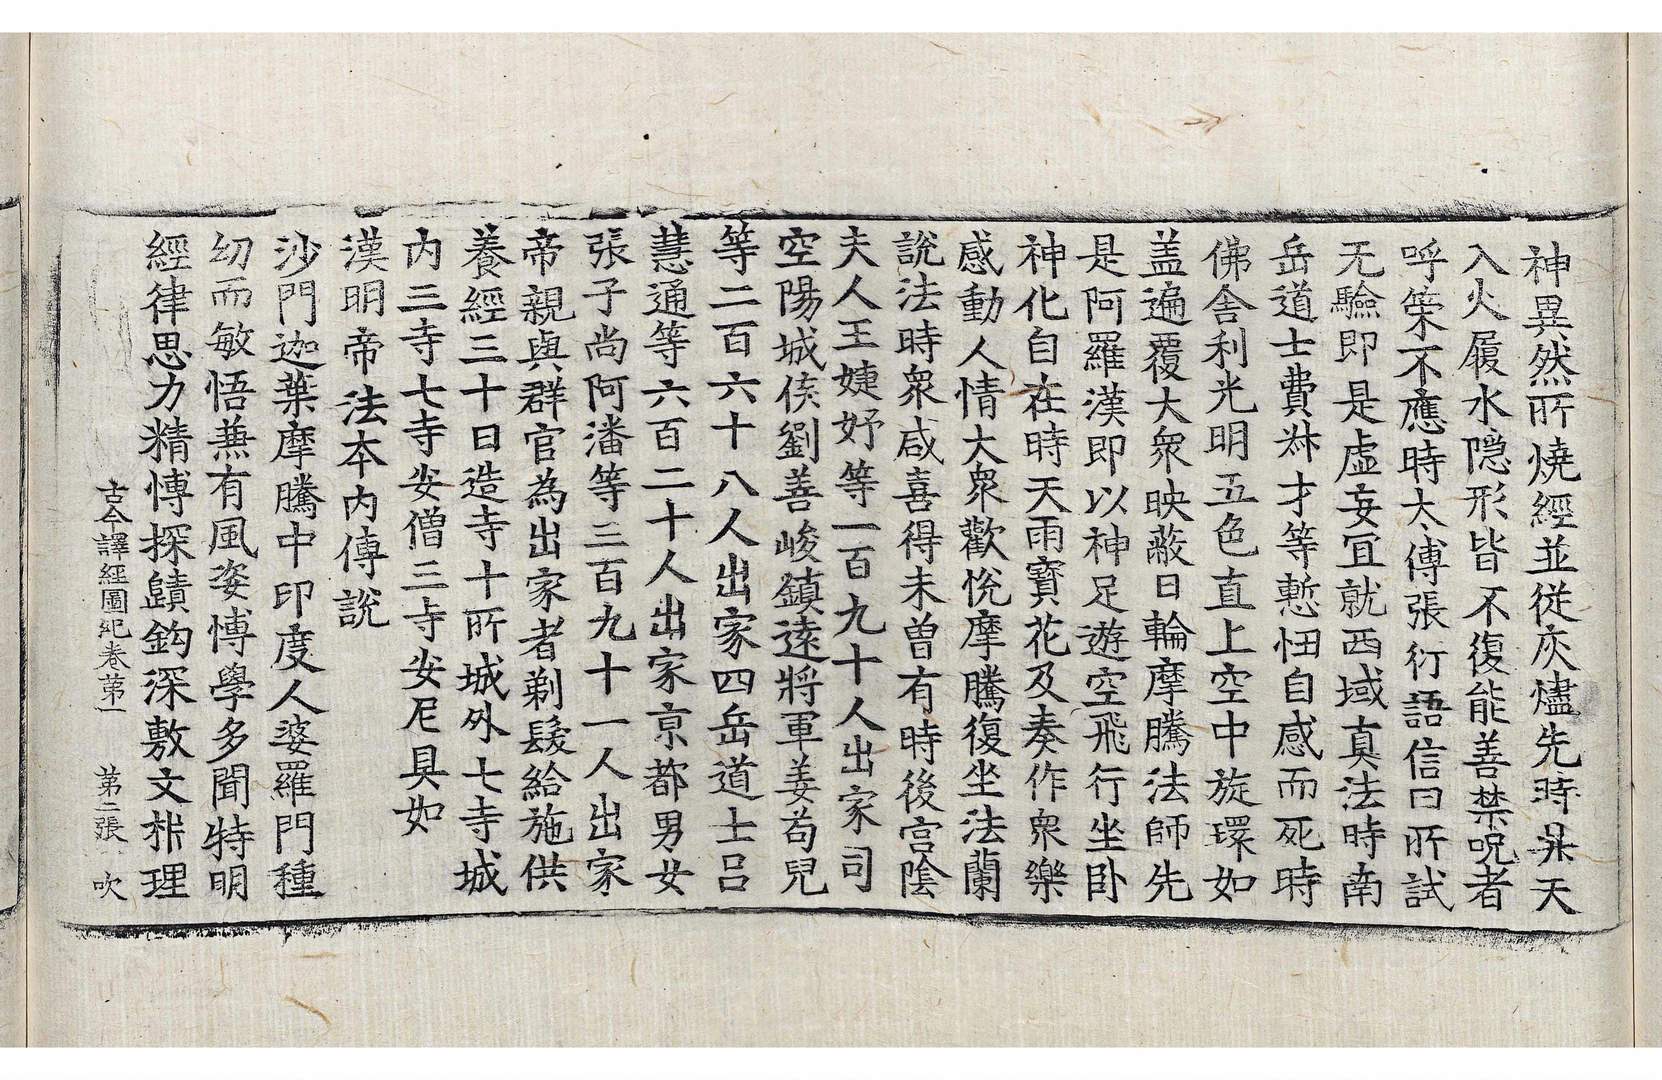 神異然所燒經並從灰燼先時昇天
入火履水隱形皆不復能善禁呪者
呼策不應時太傅張衍語信曰所試
无驗即是虛妄冝就西域真法時南
岳道士費叔才等慙忸自感而死時
佛舍利光明五色直上空中旋環如
盖遍覆大衆映蔽日輪摩騰法師先
是阿羅漢即以神足遊空飛行坐卧
神化自在時天雨寶花及奏作衆樂
感動人情大衆歡悅摩騰復坐法蘭
說法時衆咸喜得未曾有時後宮陰
夫人王婕妤等一百九十人出家司
空陽城侯劉善峻鎮遠將軍姜苟兒
等二百六十八人出家四岳道士呂
慧通等六百二十人出家京都男女
張子尚阿潘等三百九十一人出家
帝親與群官為出家者剃髮給施供
養經三十日造寺十所城外七寺城
内三寺七寺安僧三寺安尼具如
漢明帝法夲內傳說
沙門迦葉摩騰中印度人婆羅門種
幼而敏悟兼有風姿愽學多聞特明
經律思力精愽探賾鈎深敷文析理
古今譯經圖紀卷苐一　苐二張　吹